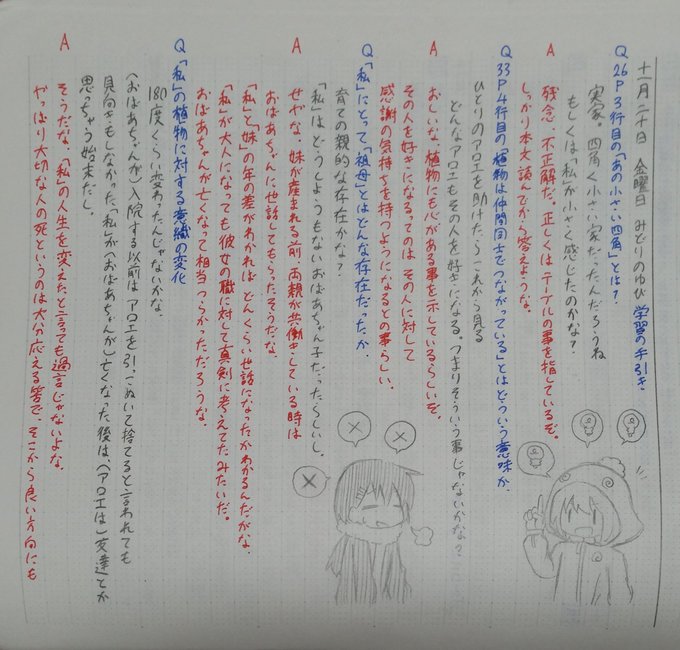 十一月二十日 金曜日 みどりのゆび 学習の手引き
Q 26P 3行目の「あの小さい四角」とは?
実家。四角く小さい家だったんだろうね
もしくは「私が小さく感じたのかな?
A 残念、不正解だ。正しくはテーブルの事を指しているぞ。
しっかり本文読んでから答えような。
Q 33P 4行目の「植物は仲間同士でつながっている」とはどういう意味か。
ひとりのアロエを助けたらこれから見る
どんなアロエもその人を好きになる。つまりそういう事じゃないかな?
A おしいな、植物にも心がある事を示しているらしいぞ。
その人を好きになるってのはその人に対して
感謝の気持ちを持つようになるとの事らしい。
Q 「私」にとって「祖母」とはどんな存在だったか。
育ての親的な存在かな?
「私」はどうしようもないおばあちゃん子だったらしいし。
A せやな。妹が産まれる前、両親が共働きしている時は
おばあちゃんに世話してもらったそうだな。
「私」と「妹」の年の差がわかればどんくらい世話になったかわかるんだがな。
「私」が大人になっても彼女の職に対して真剣に考えてたみたいだ。
おばあちゃんが亡くなって相当つらかっただろうな。
Q 「私」の植物に対する意識の変化
180度くらい変わったんじゃないかな。
〈おばあちゃんが〉入院する以前はアロエを引っこぬいて捨てると言われても
見向きもしなかった「私」が〈おばあちゃんが〉亡くなった後は、〈アロエは〉友達とか
思っちゃう始末だし。
A そうだな、「私」の人生を変えたと言っても過言じゃないよな。
やっぱり大切な人の死というのは大分応える筈で、そこから良い方向にも